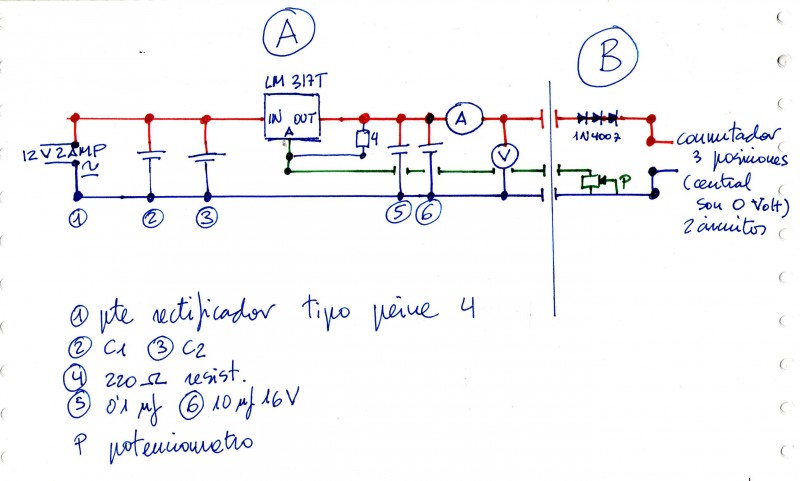 A
B
LM 317T
IN OUT
A
A
4
V
12V 2AMP
~
1N4007
P
conmutador
3 posiciones
(central
son 0 Volt)
2 circuitos
1 2 3 5 6
1 pte rectificador tipo peine 4
2 C1 3 C2
4 220 Ω resist.
5 0'1 µf 6 10 µf 16V
P potenciometro